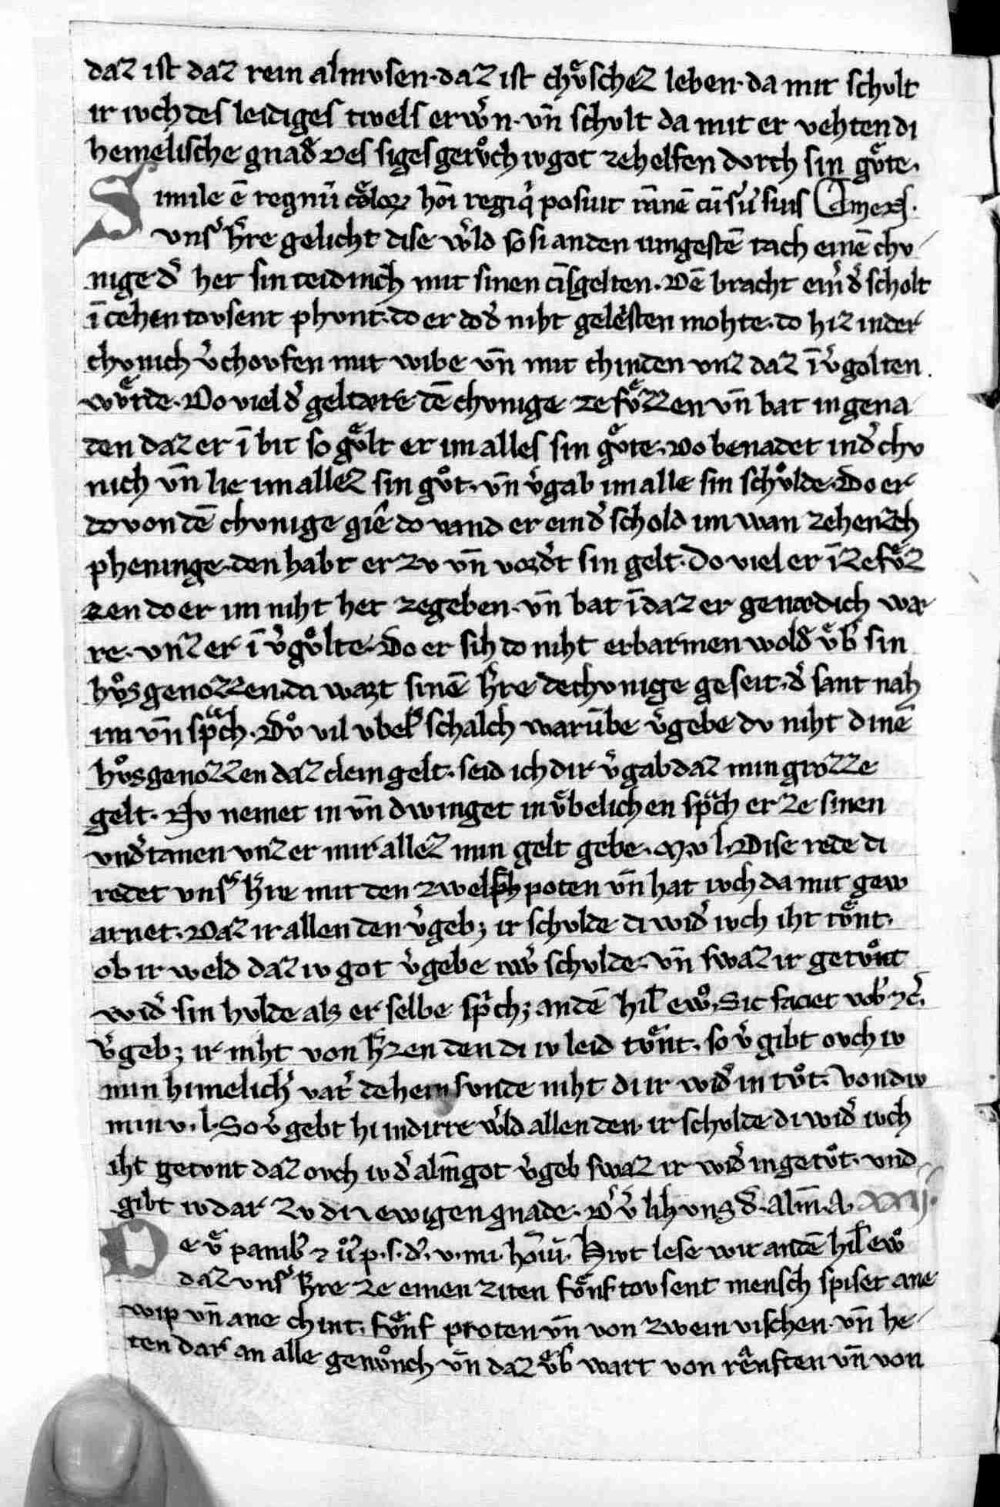 daz ist daz rein almvsen. daz ist chv̊schez leben. da mit schvlt
ir ivch des leidiges tivels erwern. vn̄ schvlt da mit er vehten di
hemelische gnad. Des siges gerv̊ch iv got zehelfen dorch sin gv̊te.
Simile ē regnū celoꝝ hoī regi q̇ posuit rōnē cū s̓uis suis
vns̓ h̓re gelicht dise w̓ld so si an den iungestē tach einē chv
nige d̓ het sin teidinch mit sinen cīsgelten. Dē bracht ein̓ d̓ scholt
ī cehen tovsent phvnt. do er do d̓ niht gelesten mohte. do hiz in der
chvnich v̓chovfen mit wibe vn̄ mit chinden vnz daz ī v̓golten
wurde. Do viel d̓ geltare dē chvnige ze fv̊zzen vn̄ bat in gena
den daz er ī bit so gv̊lt er im alles sin gv̊te. Do benadet in d̓ chv
nich vn̄ lie im allez sin gv̊t. vn̄ v̓gab im alle sin schv̊lde. Do er
do von dē chvnige giē do vand er ein d̓ schold im wan zehenzch
pheninge. den habt er zv vn̄ vord̓t sin gelt. Do viel er ī ze fv̊z
zen do er im niht het zegeben. vn̄ bat ī daz er genædich wæ
re. vnz er ī v̓gv̊lte. Do er sih do niht erbarmen wold v̊b̓ sin
hv̊sgenozzen. da wart sinē h̓re de chvnige geseit. d̓ sant nah
im vn̄ sp̊ch. Dv̊ vil vbel schalch warūbe v̓gebe dv niht dinē
hv̊sgenozzen daz clein gelt. seid ich dir v̓gab daz min grozze
gelt. Nv nemet in vn̄ dwinget in v̊belichen sp̊ch er ze sinen
vnd̓tanen vnz er mir allez min gelt gebe. M. v. l. Dise rede di
redet vns̓ h̓re mit den zwelf poten vn̄ hat ivch da mit gew
arnet. Daz ir allen den v̓gebꝫ ir schvlde di wid̓ ivch iht tv̊nt.
ob ir weld daz iv got v̓gebe iww̓ schvlde. vn̄ swaz ir getv̊nt
wid̓ sin hvlde als er selbe sp̓chꝫ an dē hil̓ ewo. Sic faciet vob̓ ⁊c̓.
v̓gebꝫ ir niht von h̓zen den di iv leid tv̊nt. so v̓gibt ovch iv
min himelich̓ vat̓ dehein svnde niht di ir wid̓ in tv̊t. Von div
min v. l. So v̓gebt hi in dirre w̓ld allen den ir schvlde di wid̓ ivch
iht getvnt daz ovch iv d̓ alm̄. got v̓geb swaz ir wid̓ in getv̊t. vnd
gibt iv dar zv di ewigen gnade. D̓ v̓lih vns d̓. alm̄. A.
De v̊ panib̓ ⁊ Hivt lese wir an dē hil̓ ewo
daz vns̓ h̓re ze einen ziten fv̊nf tovsent mensch spiset ane
wip vn̄ ane chint. fv̊nf proten vn̄ von zwein vischen. vn̄ he
ten dar an alle genv̊ch vn̄ daz v̊b̓ wart von renften vn̄ von